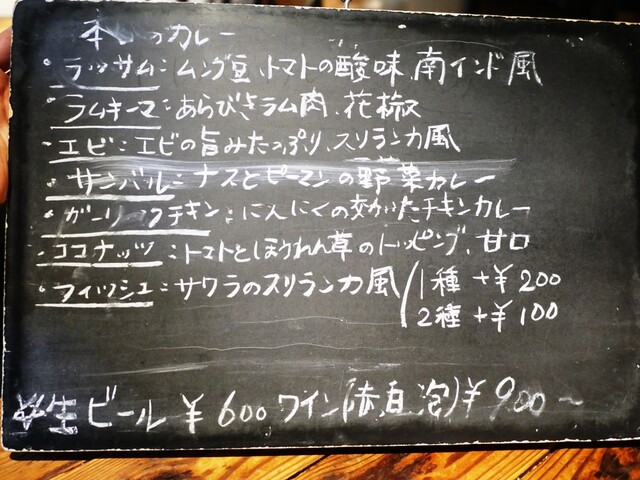 本日のカレー
・ラッサム:ムング豆、トマトの酸味 南インド風
・ラムキーマ:あらびきラム肉、花椒
・エビ:エビの旨みたっぷり、スリランカ風
・サンバル:ナスとピーマンの野菜カレー
・ガーリックチキン:にんにくの効いたチキンカレー
・ココナッツ:トマトとほうれん草のトッピング、甘口
・フィッシュ:サワラのスリランカ風
1種 +¥200
2種 +¥100
生ビール ¥600 ワイン(赤、白、泡)¥900~